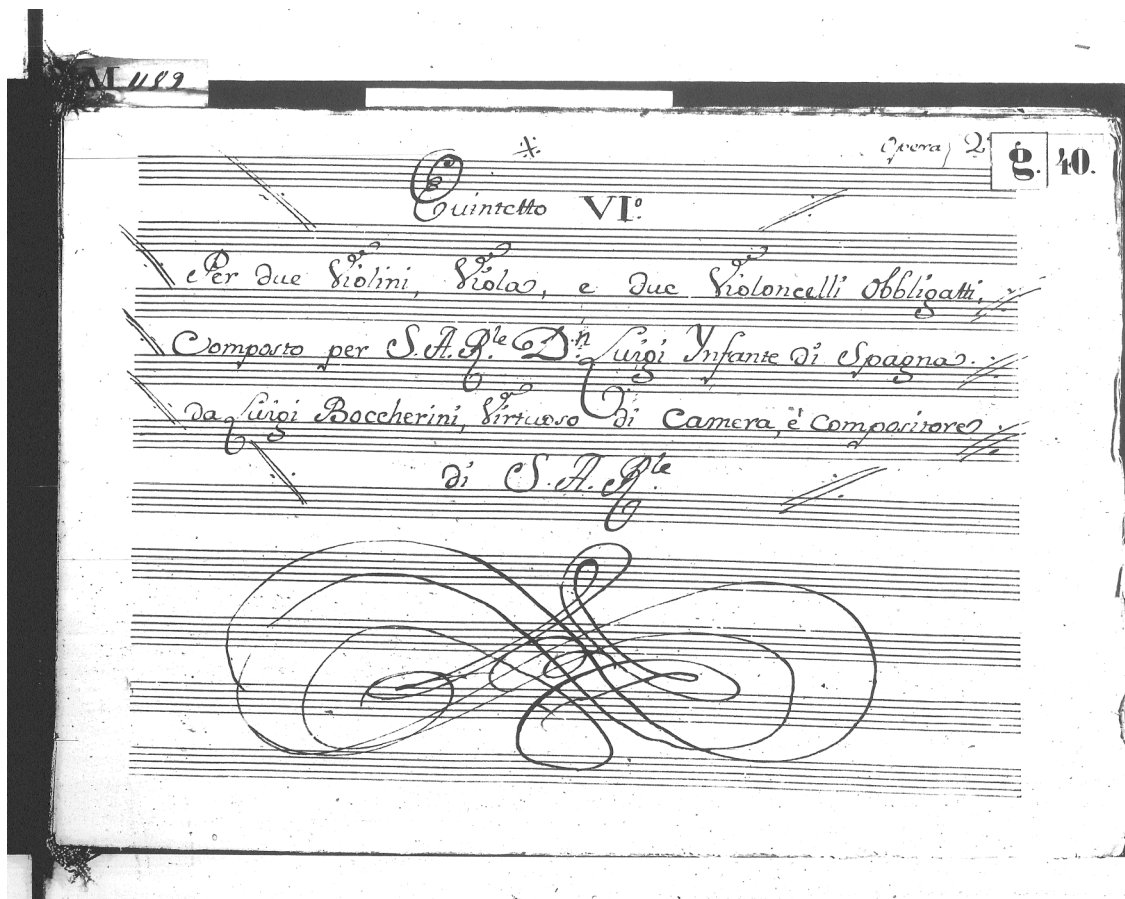 M 1189
Opera 2
g. 40.
Quintetto VI.º
Per due Violini, Viola, e due Violoncelli obbligatti,
Composto per S. A. R.le D.n Luigi Ynfante di Spagna.
da Luigi Boccherini, Virtuoso di Camera, è Compositore
di S. A. R.le